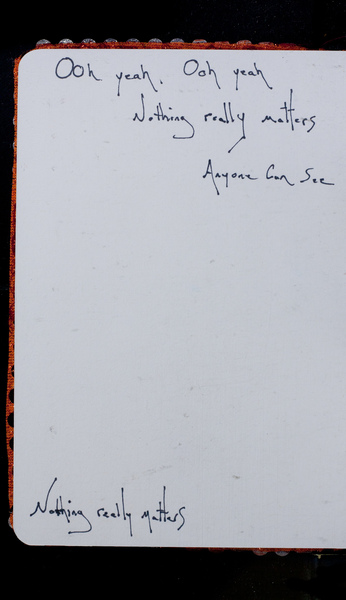 Ooh yeah. Ooh yeah
Nothing really matters
Anyone Can See
Nothing really matters